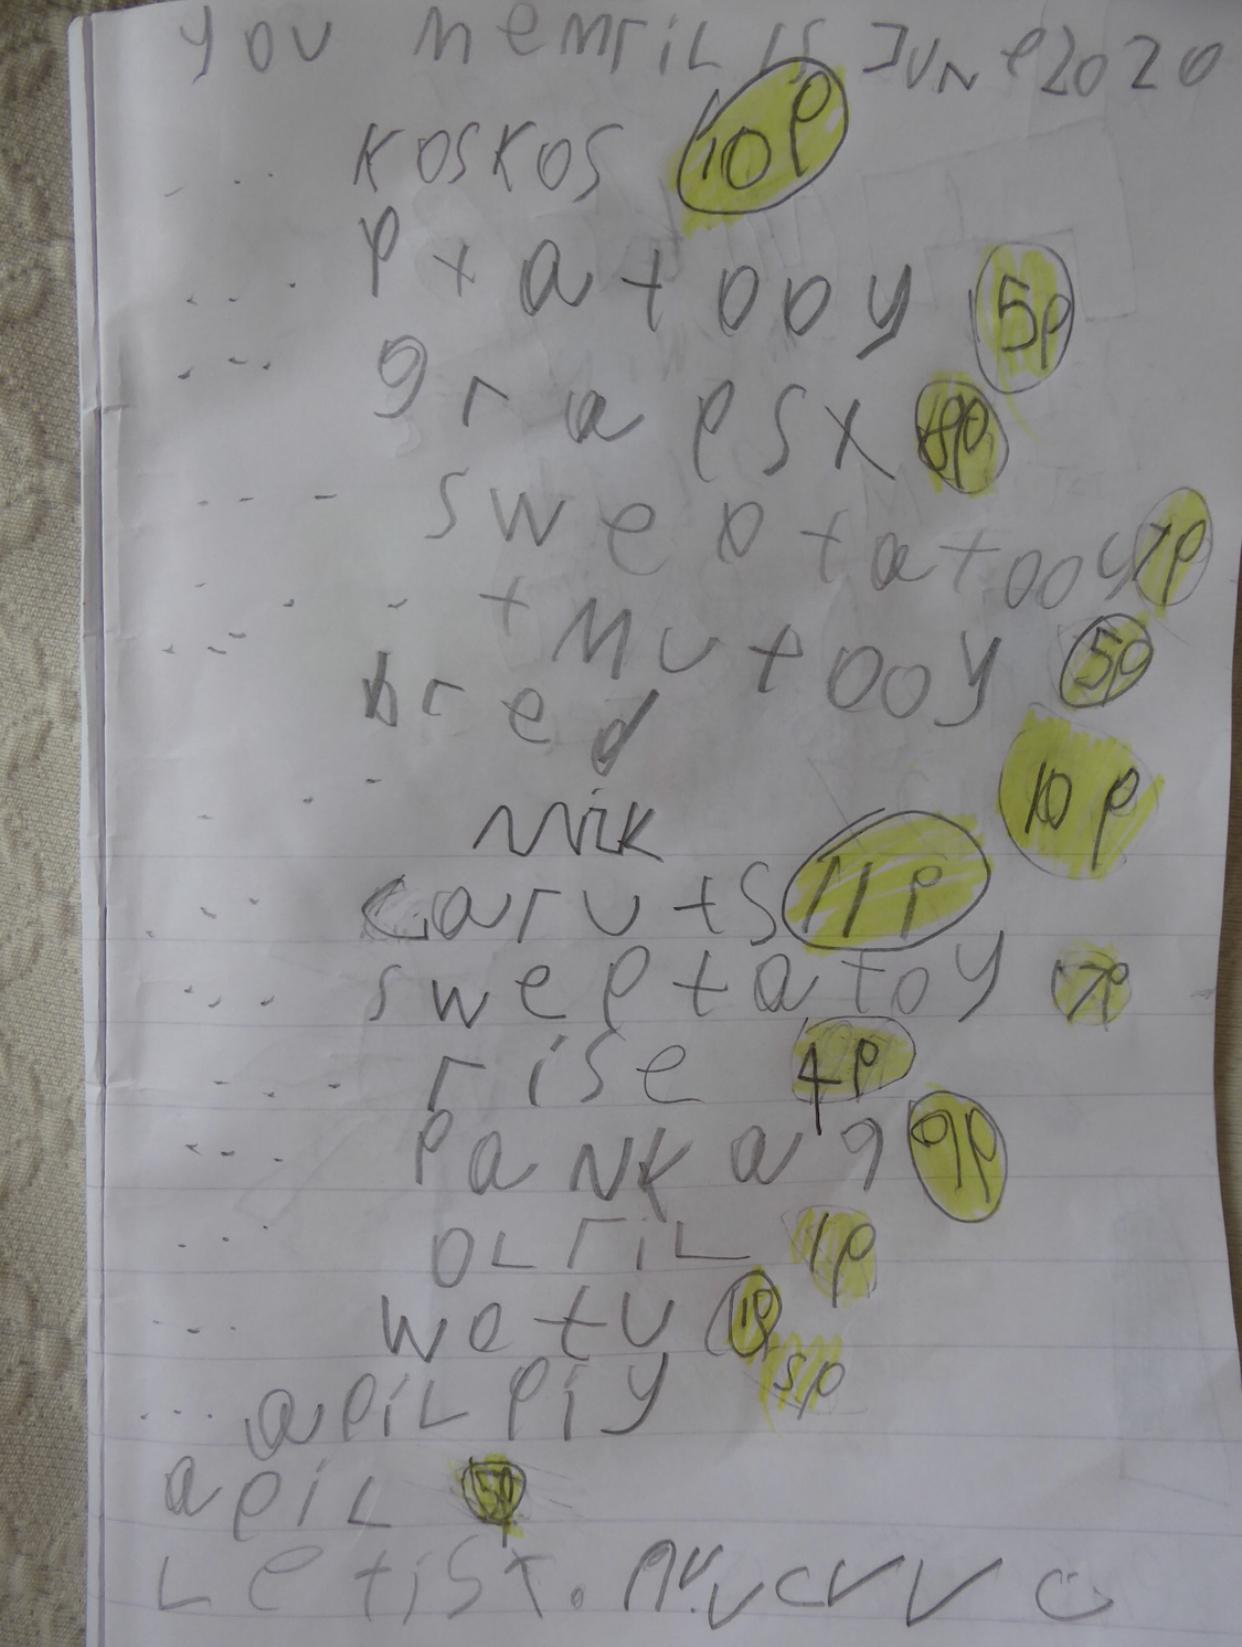 you memriL is JUNe 2020
KOSKOS 10P
Ptatooy 5p
grapesx 8p
sweptatooy 7P
tMutooy 5p
bred
10 p
Mik
caruts 11P
sweptatoy 7P
rise 4P
PaNKag 9p
oLriL 1p
wetu 1p
apiLpiy 5p
apiL 5p
Letist.